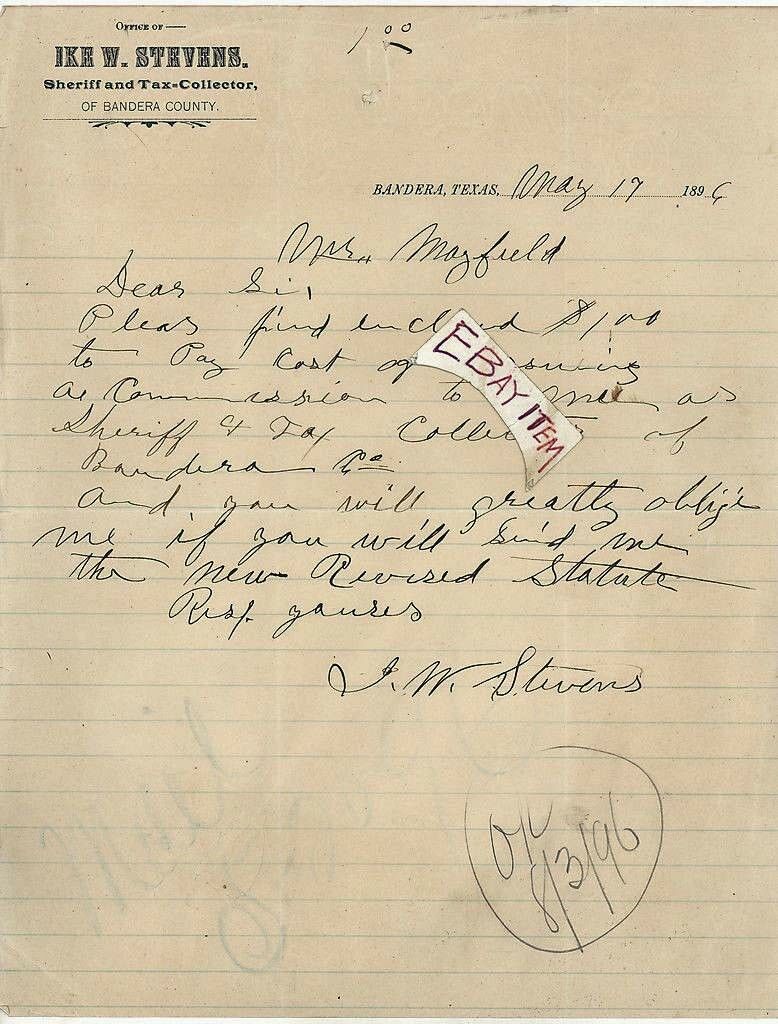 OFFICE OF
IKE W. STEVENS.
Sheriff and Tax-Collector,
OF BANDERA COUNTY.
1 00
BANDERA, TEXAS, May 17 1896
Mr. Mayfield
Dear Sir,
Pleas find enclosed $1,00
to Pay Cost of issuing
a Commission to me as
Sheriff & Tax Collector of
Bandera Co.
and you will greatly oblige
me if you will send me
the new Revised Statute
Resp. youres
I. W. Stevens
EBAY ITEM
OK
8/3/96